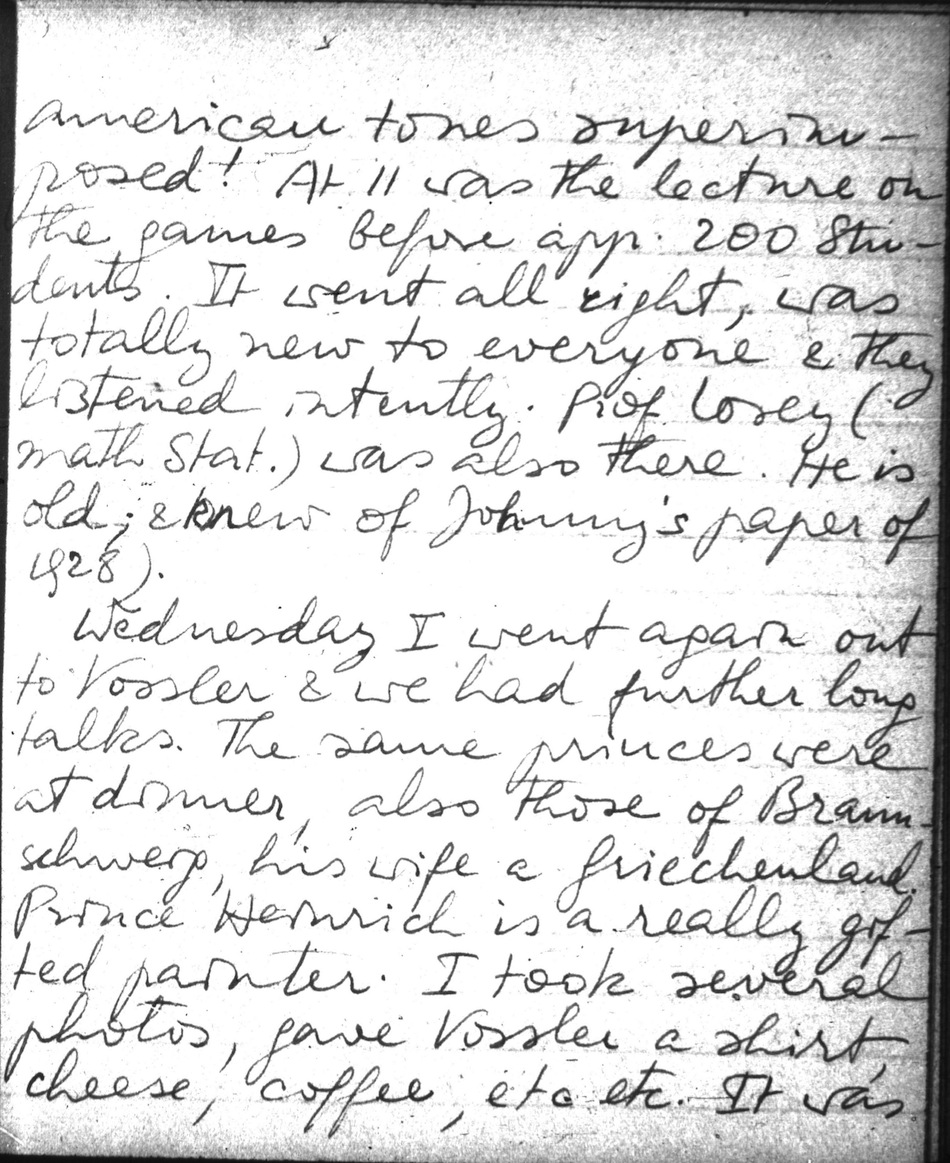 american tones superim-
posed! At 11 was the lecture on
the games before app. 200 Stu-
dents. It went all right, was
totally new to everyone & they
listened intently. Prof Losey (
math Stat.) was also there. He is
old; & knew of Johnny's paper of
1928).
Wednesday I went again out
to Vossler & we had further long
talks. The same princes were
at dinner, also those of Braun-
schweig, his wife a Griechenland.
Prince Heinrich is a really gif-
ted painter. I took several
photos, gave Vossler a shirt,
cheese, coffee, etc etc. It was